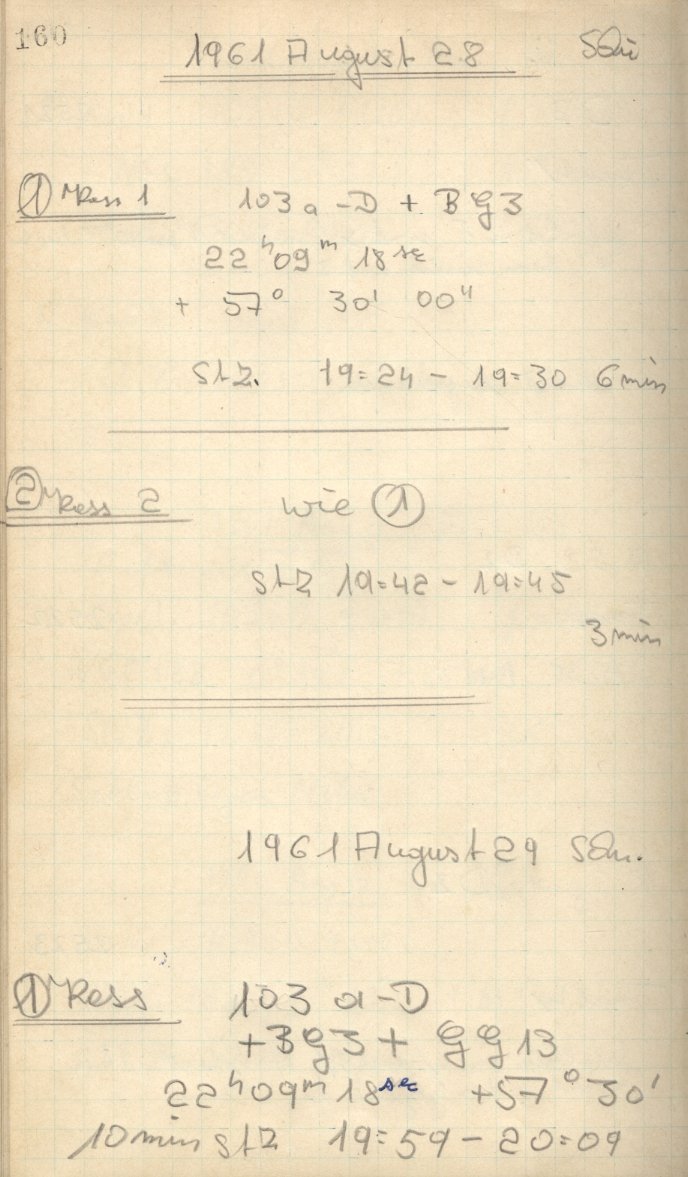 160
1961 August 28 Sch
① Kass 1 103 a-D + BG3
22ʰ09ᵐ 18ˢᵉᶜ
+ 57° 30' 00"
StZ. 19=24 - 19=30 6 min
② Kass 2 wie ①
StZ 19=42 - 19=45
3 min
1961 August 29 Sch.
① Kass 103 a-D
+BG3 + GG13
22ʰ09ᵐ18ˢᵉᶜ +57° 30'
10 min StZ 19=59 - 20=09